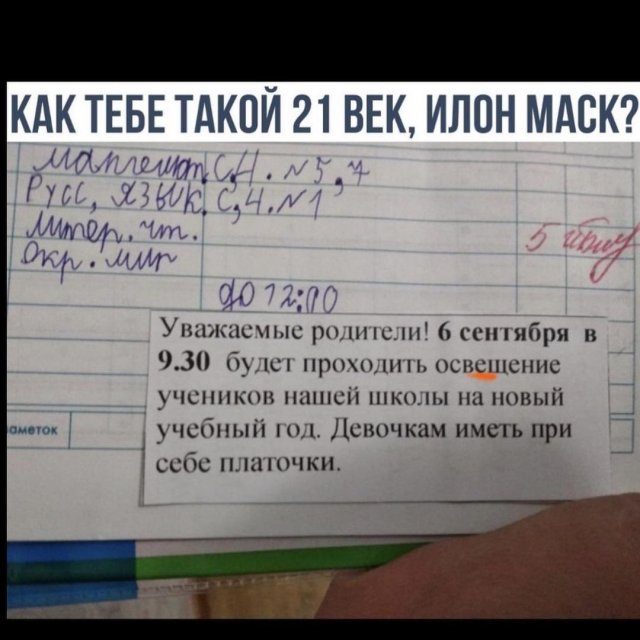 КАК ТЕБЕ ТАКОЙ 21 ВЕК, ИЛОН МАСК?
С,4. №5,7
Русс, ЯЗЫК. С,4.№1
Литер. чт.
Окр. мир
5
до 12:00
Уважаемые родители! 6 сентября в
9.30 будет проходить освещение
учеников нашей школы на новый
учебный год. Девочкам иметь при
себе платочки.
аметок